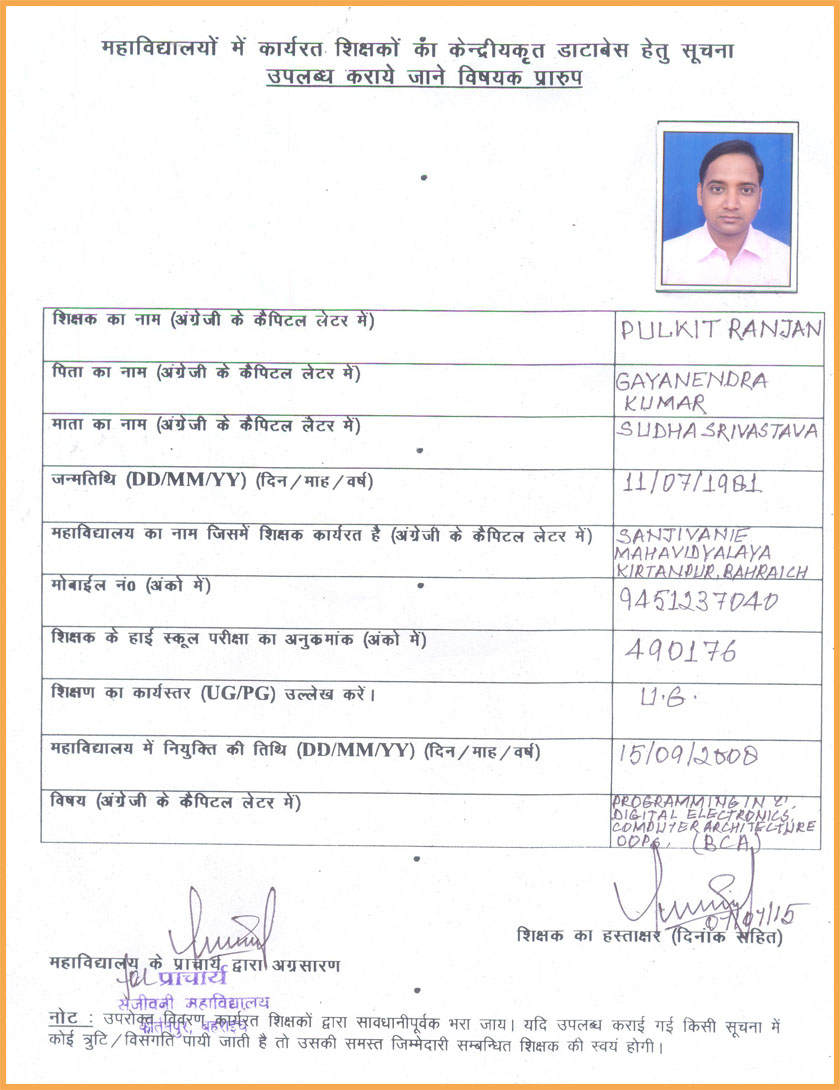 महाविद्यालयों में कार्यरत शिक्षकों का केन्द्रीयकृत डाटाबेस हेतु सूचना
उपलब्ध कराये जाने विषयक प्रारुप
शिक्षक का नाम (अंग्रेजी के कैपिटल लेटर में)
PULKIT RANJAN
पिता का नाम (अंग्रेजी के कैपिटल लेटर में)
GAYANENDRA
KUMAR
माता का नाम (अंग्रेजी के कैपिटल लैटर में)
SUDHA SRIVASTAVA
जन्मतिथि (DD/MM/YY) (दिन/माह/वर्ष)
11/07/1981
महाविद्यालय का नाम जिसमें शिक्षक कार्यरत है (अंग्रेजी के कैपिटल लेटर में)
SANJIVANIE
MAHAVIDYALAYA
KIRTANPUR, BAHRAICH
मोबाईल नं0 (अंको में)
9451237040
शिक्षक के हाई स्कूल परीक्षा का अनुकमांक (अंको में)
490176
शिक्षण का कार्यस्तर (UG/PG) उल्लेख करें।
U.G.
महाविद्यालय में नियुक्ति की तिथि (DD/MM/YY) (दिन/माह/वर्ष)
15/09/2008
विषय (अंग्रेजी के कैपिटल लेटर में)
PROGRAMMING IN 'C',
DIGITAL ELECTRONICS,
COMPUTER ARCHITECTURE
OOPs, (BCA)
07/07/15
शिक्षक का हस्ताक्षर (दिनांक सहित)
महाविद्यालय के प्राचार्य द्वारा अग्रसारण
प्राचार्य
सैजीवनी महाविद्यालय
कीर्तनपुर, बहराइच
नोट : उपरोक्त विवरण कार्यरत शिक्षकों द्वारा सावधानीपूर्वक भरा जाय। यदि उपलब्ध कराई गई किसी सूचना में
कोई त्रुटि/विसंगति पायी जाती है तो उसकी समस्त जिम्मेदारी सम्बन्धित शिक्षक की स्वयं होगी।